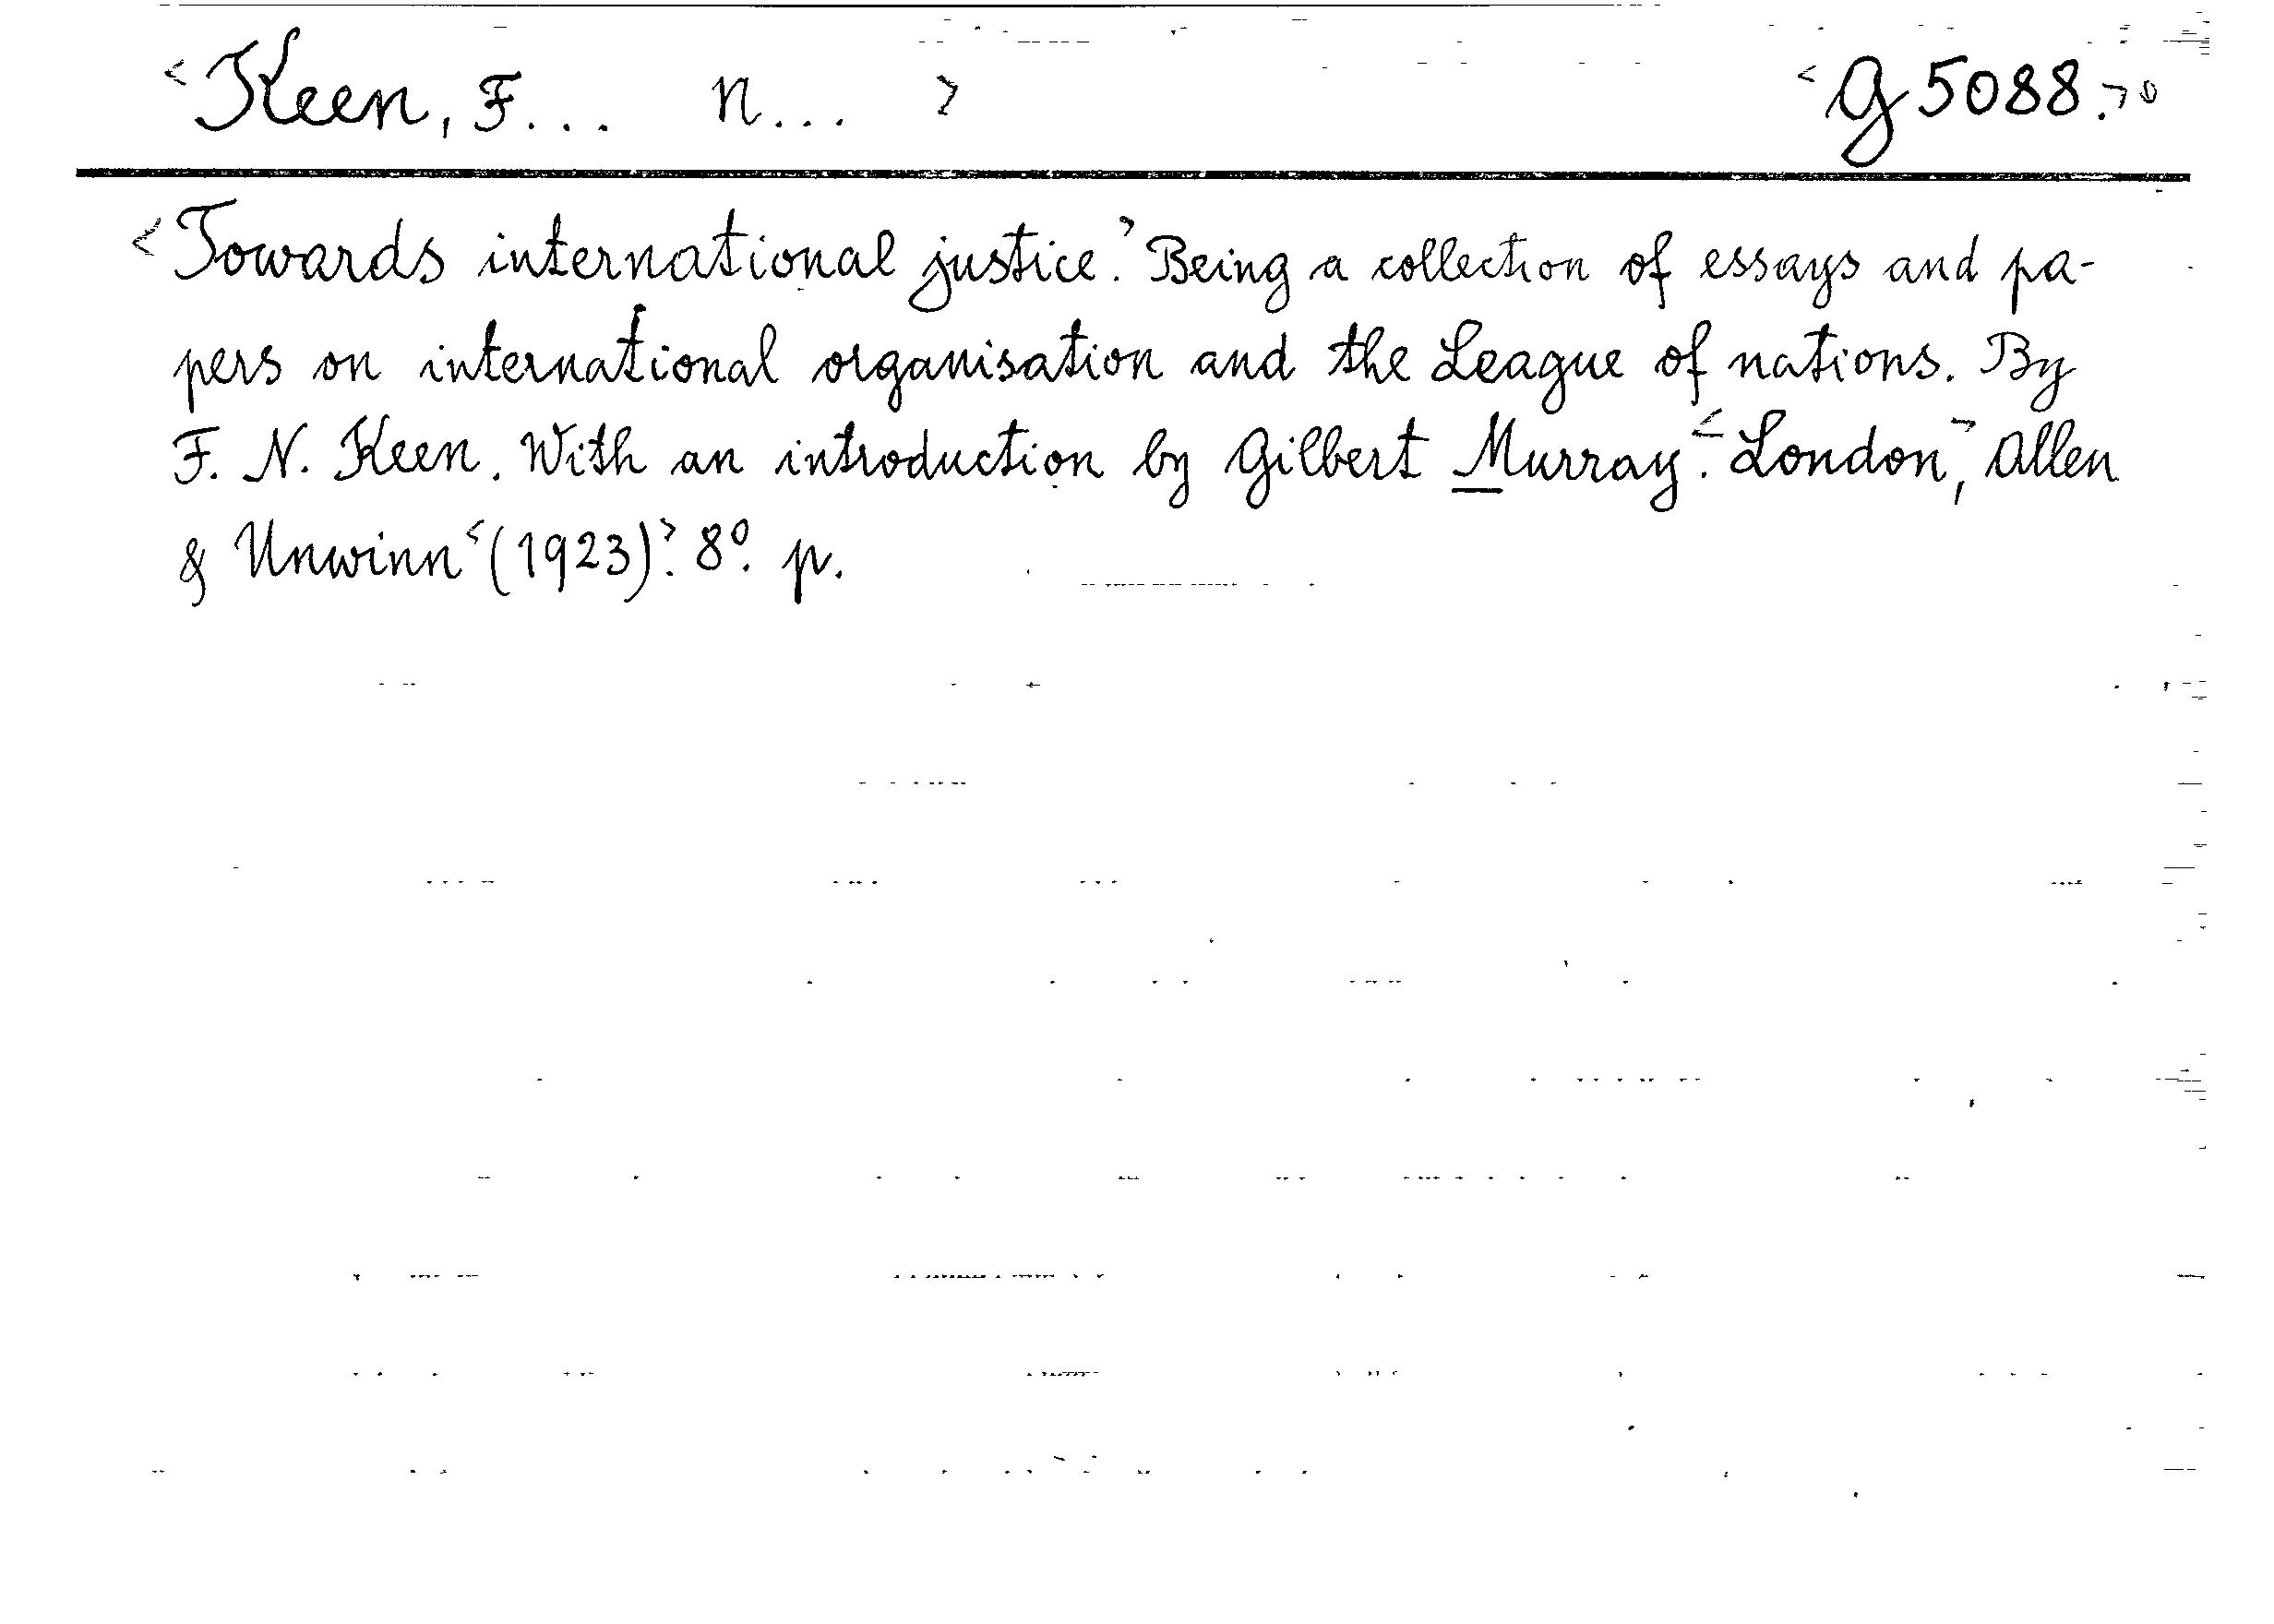 <Keen, F... N...> <G 5088.>⁰
<Towards international justice.> Being a collection of essays and pa-
pers on international organisation and the League of nations. By
F. N. Keen. With an introduction by Gilbert Murray. <London,> Allen
& Unwinn <(1923)>. 8⁰. p.